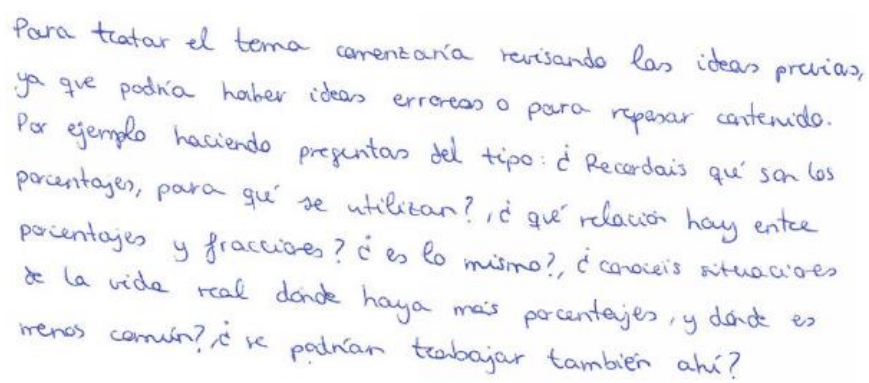 Para tratar el tema comenzaría revisando las ideas previas,
ya que podría haber ideas erróreas o para repasar contenido.
Por ejemplo haciendo preguntas del tipo: ¿Recordais qué son los
porcentajes, para qué se utilizan?, ¿qué relación hay entre
porcentajes y fracciones? ¿es lo mismo?, ¿conoceis situaciones
de la vida real donde haya más porcentajes, y dónde es
menos común?, ¿se podrían trabajar también ahí?